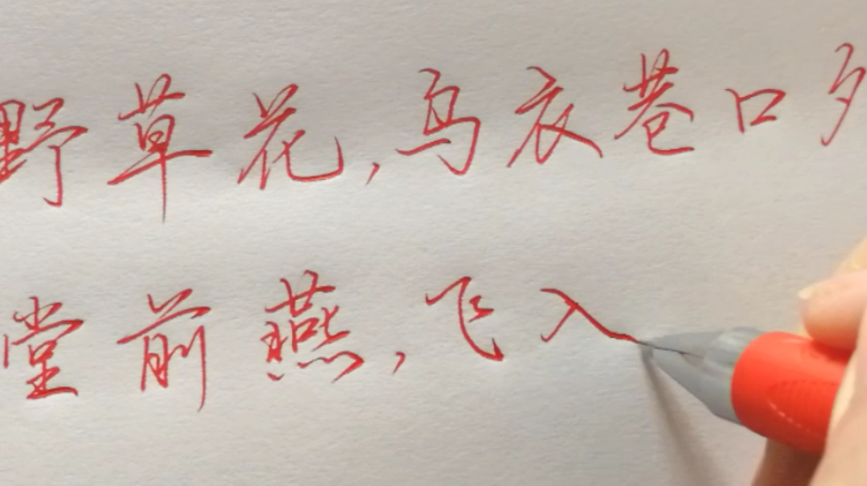 野草花,乌衣巷口夕
堂前燕,飞入